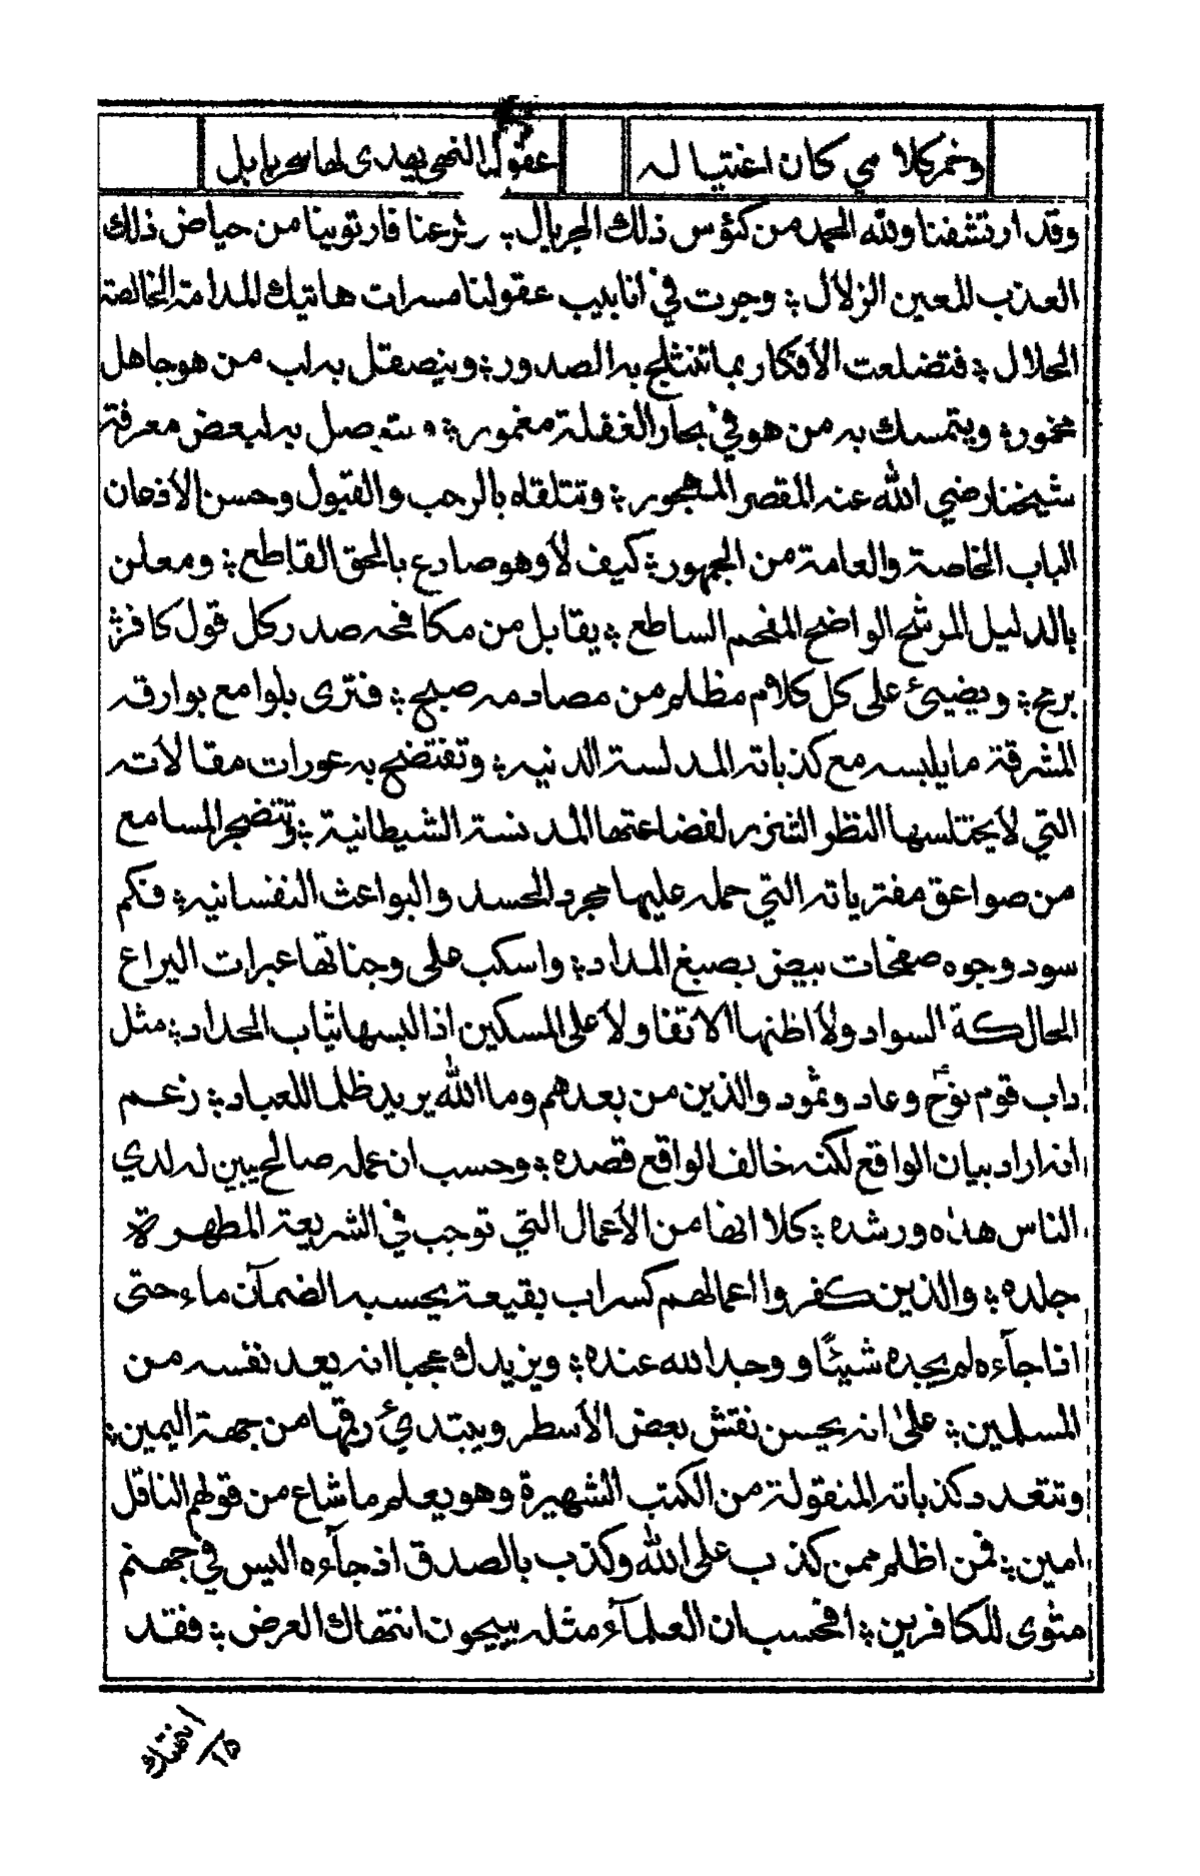 وخمر كلامي كان اغتياله عقولنا النهى يهدى لها سحر بابل
وقد ارتشفنا ولله الحمد من كئوس ذلك الجريال ؞ رعنا فارتوينا من حياض ذلك
العذب المعين الزلال ؞ وجرت في انابيب عقولنا مسرات هاتيك المدامة الخالصة
الحلال ؞ فتضلعت الأفكار بما تنثلج به الصدور ؞ وينصقل به لب من هو جاهل
مخمور ؞ ويتمسك به من هو في بحار الغفلة مغمور ؞ ويتوصل به لبعض معرفة
شيخنا رضي الله عنه المقصر المهجور ؞ وتتلقاه بالرحب والقبول وحسن الأذعان
الباب الخاصة والعامة من الجمهور ؞ كيف لا وهو صادع بالحق القاطع ؞ ومعلن
بالدليل المرشح الواضح المفحم الساطع ؞ يقابل من مكافحه صدر كل قول كافر ؞
بريح ؞ ويضيئ على كل كلام مظلم من مصادمه صبيح ؞ فترى بلوامع بوارقه
المشرقة ما يلبسه مع كذباته المدلسة الدنيه ؞ وتفتضح به عورات مقالاته
التي لا يختلسها النظر الشزر لفضاعتها المدنسة الشيطانية ؞ وتتضجر المسامع
من صواعق مفترياته التي حمله عليها مجرد الحسد والبواعث النفسانيه ؞ فكم
سود وجوه صفحات بيض بصبغ المداد ؞ واسكب على وجناتها عبرات اليراع
الحالكة السواد ولا اظنها الا تفاولا على المسكين اذ البسها ثياب الحداد ؞ مثل
داب قوم نوح وعاد وثمود والذين من بعدهم وما الله يريد ظلما للعباد ؞ زعم
انه اراد بيان الواقع لكنه خالف الواقع قصده ؞ وحسب ان عمله صالح يبين له لدي
الناس هذاه ورشده ؞ كلا انها من الأعمال التي توجب في الشريعة المطهرة
جلده ؞ والذين كفروا اعمالهم كسراب بقيعة يحسبه الضمآن ماء حتى
اذا جآءه لم يجده شيئًا ووجد الله عنده ؞ ويزيدك عجبا انه يعد نفسه من
المسلمين ؞ على انه يحسن نقش بعض الأسطر ويبتدئ رقمها من جهة اليمين ؞
وتتعدد كذباته المنقولة من الكتب الشهيرة وهو يعلم ما شاع من قولهم الناقل
امين ؞ فمن اظلم ممن كذب على الله وكذب بالصدق اذ جآءه اليس في جهنم
مثوى للكافرين ؞ افحسب ان العلمآء مثله يبيحون انتهاك العرض ؞ فقد